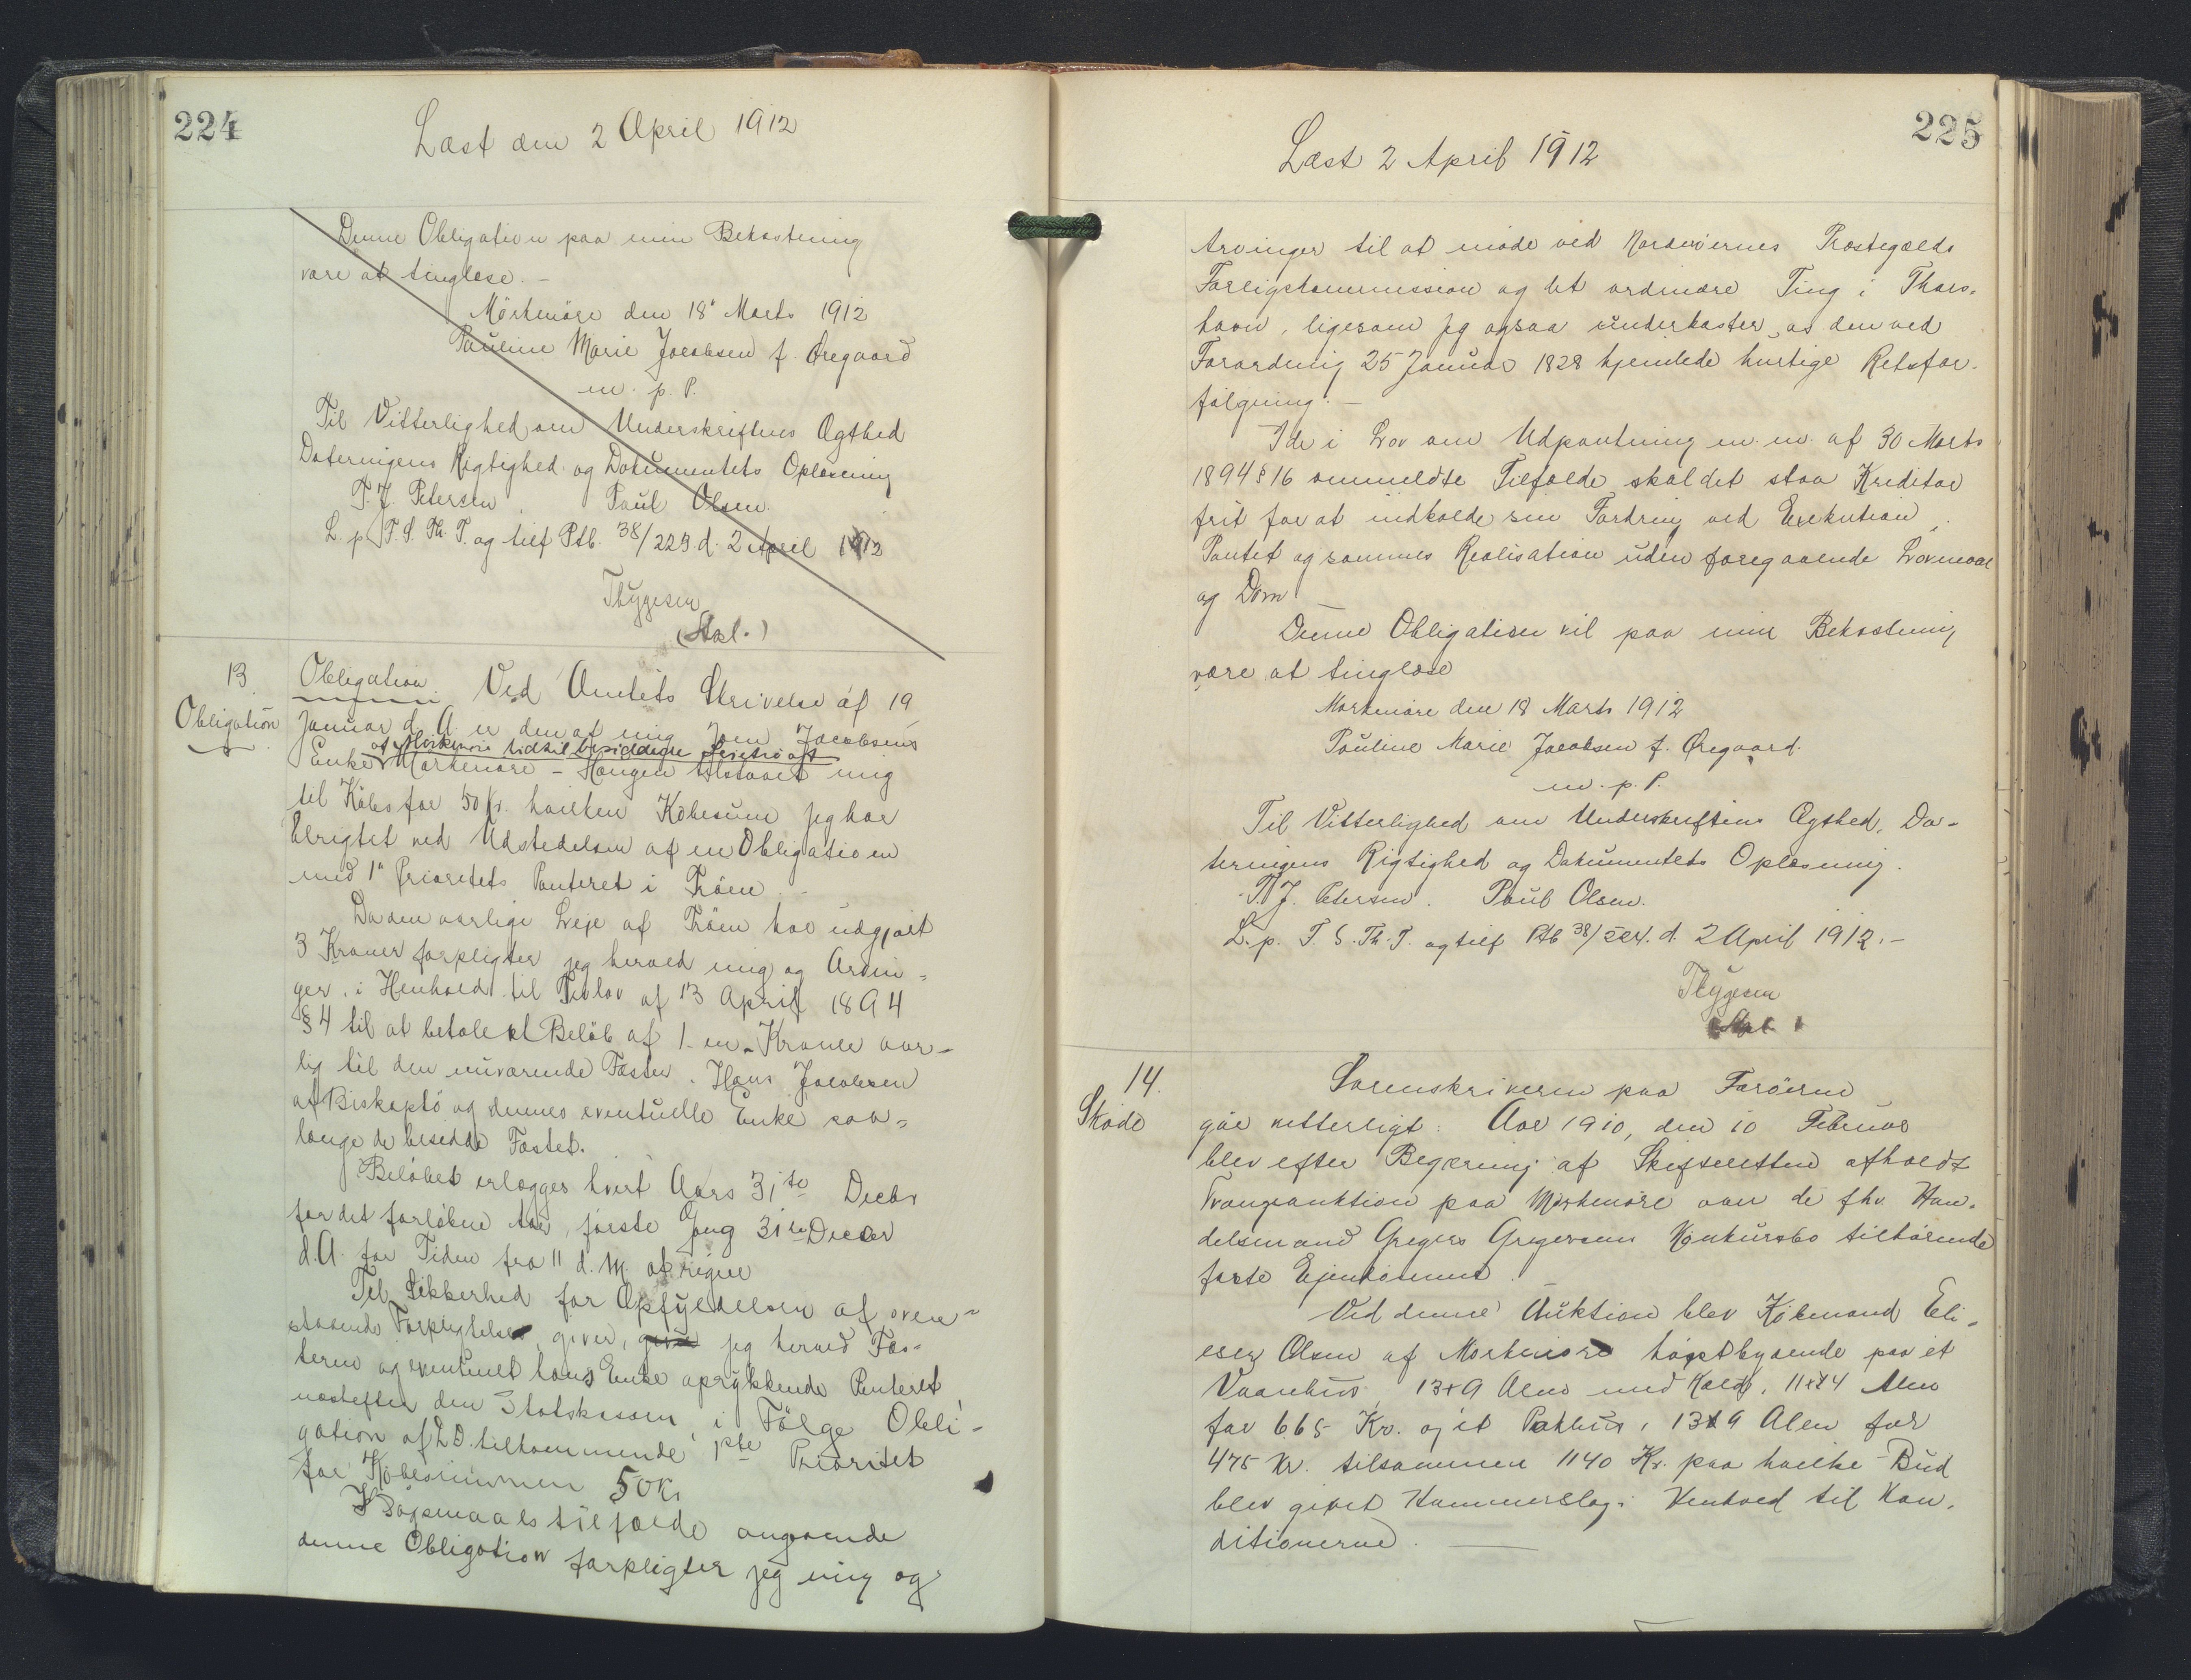 224
Læst den 2 April 1912
Denne Obligation paa min Bekostning
være at tinglæse. -
Mörkenöre den 18' Marts 1912
Pauline Marie Jacobsen f. Øregaard
m. p. P.
Til Vitterlighed om Underskriftens Ægthed
Dateringens Rigtighed og Dokumentets Oplæsning
T. J. Petersen, Poul Olsen.
L. p. T. S. Th. T. og tilf Ptb. 38/223 d. 2 April 1912
Thygesen
(Stpl.)
13.
Obligation
Obligation. Ved Amtets Skrivelse af 19
Januar d. A er den af mig Joen Jacobsens
af Mörkenöre hidtil besiddede
Enke Mörkenöre - Haugen tilstaaet mig
til Købs for 50 Kr. hvilken Købesum jeg har
berigtet ved Udstedelsen af en Obligation
med 1' Prioritets Panteret i Tröen. -
Da den aarlige Leje af Tröen har udgjort
3 Kroner forpligter jeg herved mig og Arvin-
ger, i Henhold til Tillov af 13 April 1894
§ 4 til at betale et Beløb af 1 - en - Krone aar-
lig til den nuværende Fæster. Hans Jacobsen
af Biskopstö og dennes eventuelle Enke saa-
længe de besidde Fæstet.
Beløbet erlægges hvert Aars 31te Decbr
for det forløbne Aar, første Gang 31te Decbr
d. A. for Tiden fra 11 d. M. at regne
Til Sikkerhed for Opfyldelsen af oven-
staaende Forpligtelser, giver, jeg herved Fæs-
teren og eventuelt hans Enke oprykkende Panteret
næstefter den Statskassen i Følge Obli-
gation af D. D. tilkommende 1ste Prioritet
for Købesummen 50 Kr
I Søgsmaalstilfælde angaaende
denne Obligation forpligter jeg mig og
225
Læst 2 April 1912
Arvinger til at møde ved Norderøernes Præstegælds
Forligskommission og det ordinære Ting i Thors-
havn, ligesom jeg ogsaa underkaster os den ved
Forordning 25 Januar 1828 hjemlede hurtige Retsfor-
følgning. -
I de i Lov om Udpantning m. m. af 30 Marts
1894 § 16 ommeldte Tilfælde skal det staa Kreditor
frit for at indkalde sin Fordring ved Exekution i
Pantet og sammes Realisation uden foregaaende Lovmaal
og Dom
Denne Obligation vil paa min Bekostning
være at tinglæse
Mørkenøre den 18 Marts 1912
Pauline Marie Jacobsen f. Øregaard.
m. p. P.
Til Vitterlighed om Underskriftens Ægthed, Da-
teringens Rigtighed og Dokumentets Oplæsning.
T. J. Petersen. Poul Olsen.
L. p. T. S. Th. T. og tilf Ptb 38/224. d. 2 April 1912. -
Thygesen
Stpl
14.
Skøde
Sorenskriveren paa Færöerne
gør vitterligt: Aar 1910, den 10 Februar
blev efter Begæring af Skifteretten afholdt
Tvangsauktion paa Mørkenøre over de fhv. Han-
delsmand Gregers Gregersens Konkursbo tilhørende
faste Ejendomme. -
Ved denne Auktion blev Købmand Eli-
eser Olsen af Mørkenøre højstbydende paa et
Vaanhus, 13 x 9 Alen med Kælder, 11 x 14 Alen
for 665 Kr. og et Pakhus, 13 x 9 Alen for
475 Kr. tilsammen 1140 Kr. paa hvilke Bud
blev givet Hammerslag i Henhold til Kon-
ditionerne.